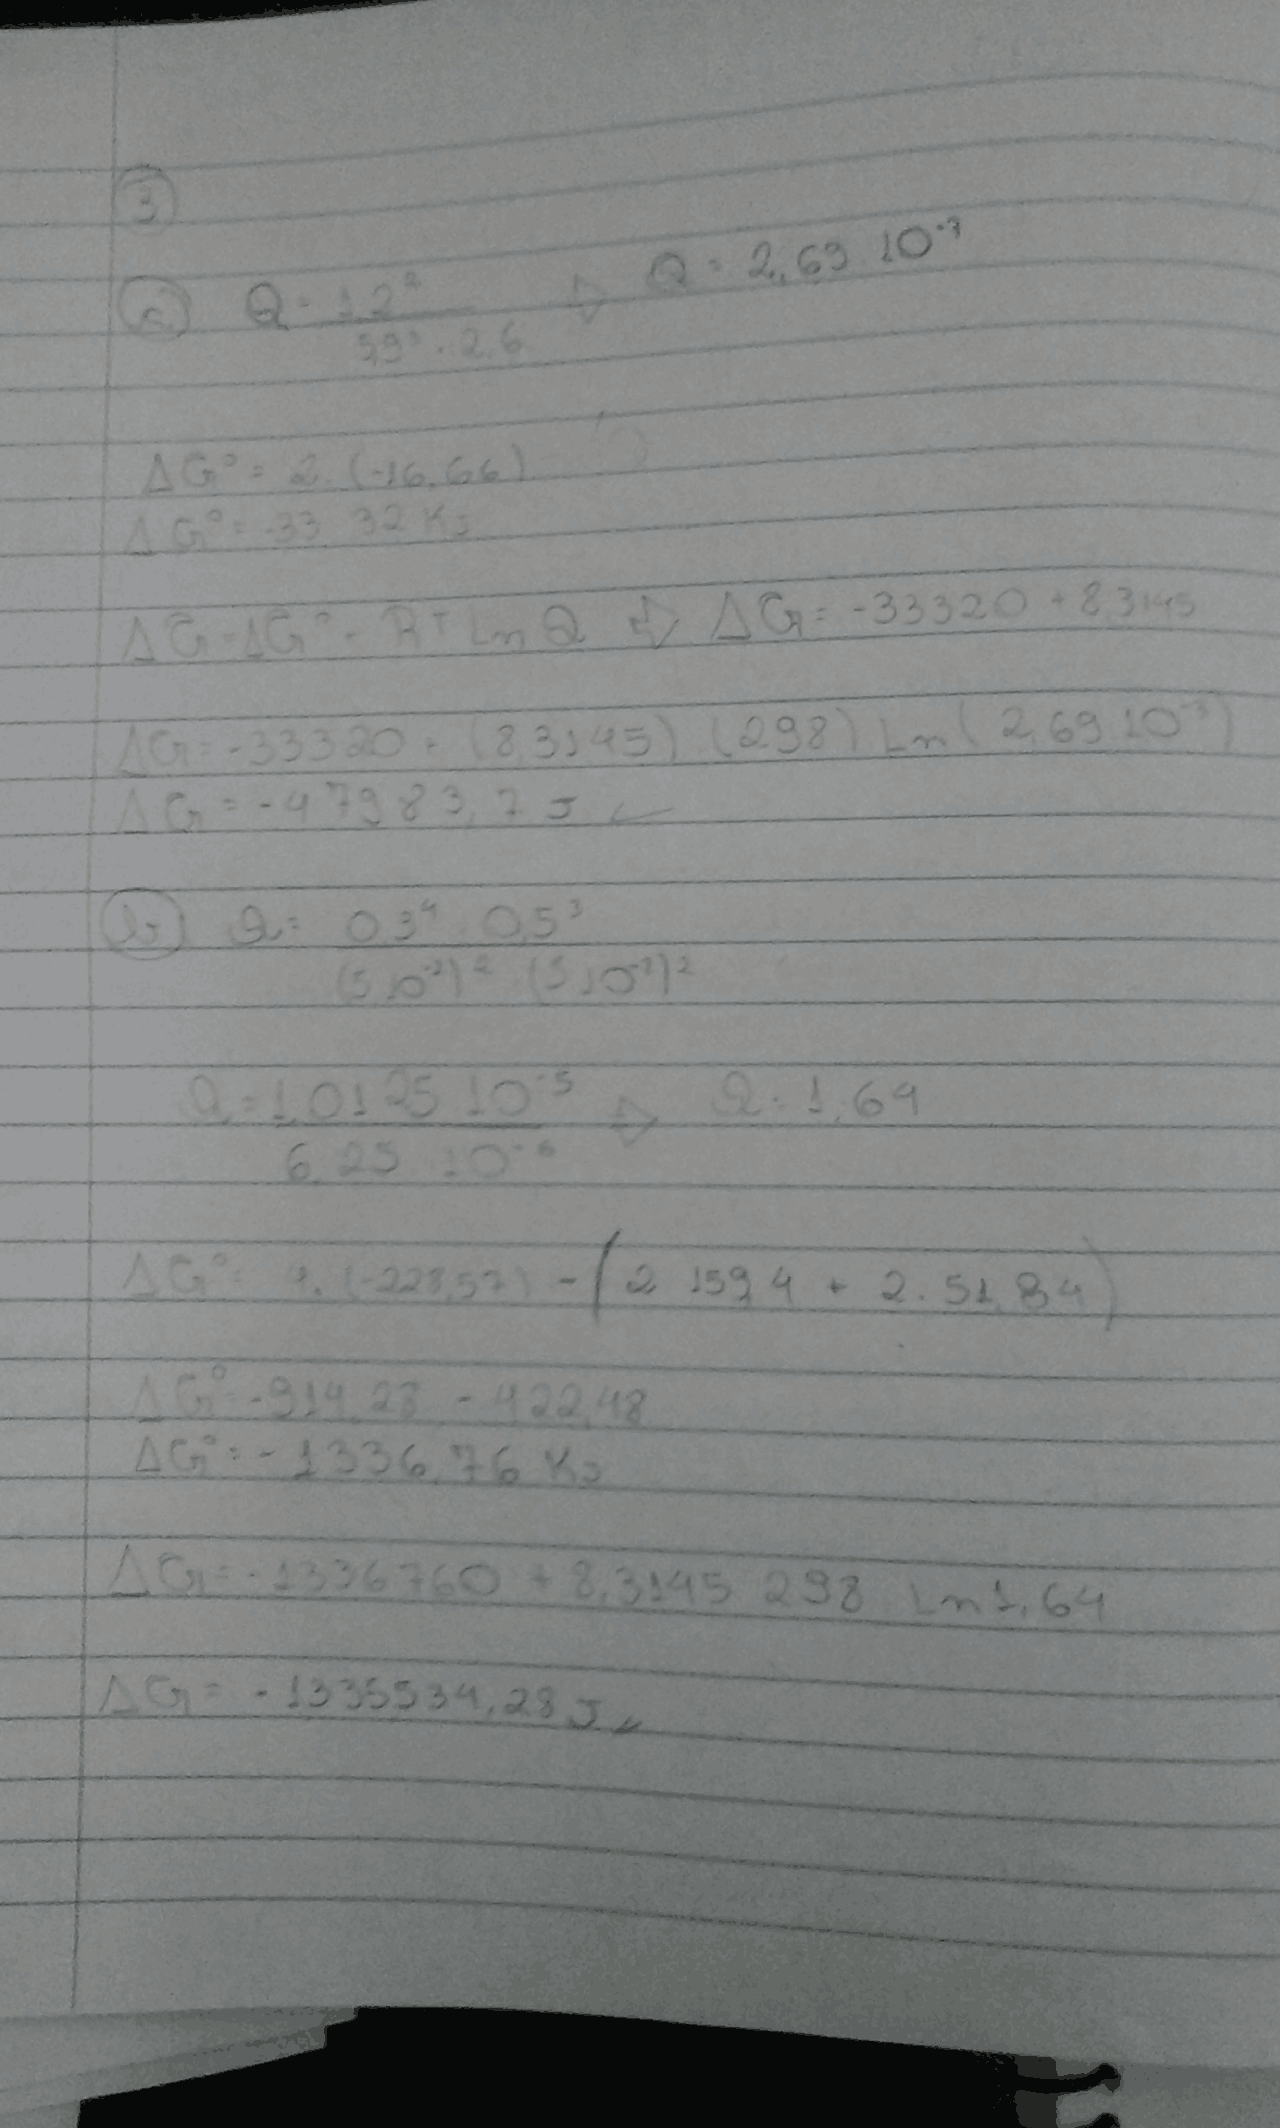 3
a) Q = 1,2² / 5,9³ . 2,6 ⇨ Q = 2,69.10⁻³
ΔG° = 2.(-16,66)
ΔG° = -33,32 KJ
ΔG = ΔG° + RT Ln Q ⇨ ΔG = -33320 + 8,3145
ΔG = -33320 + (8,3145).(298) Ln (2,69.10⁻³)
ΔG = -47983,7 J
b) Q = 0,3⁴ . 0,5³ / (5.10⁻²)² . (5.10⁻²)²
Q = 1,0125.10⁻⁵ / 6,25.10⁻⁶ ⇨ Q = 1,64
ΔG° = 4.(-228,57) - (2.159,4 + 2.51,84)
ΔG° = -914,28 - 422,48
ΔG° = -1336,76 KJ
ΔG = -1336760 + 8,3145.298.Ln 1,64
ΔG = -1335534,28 J